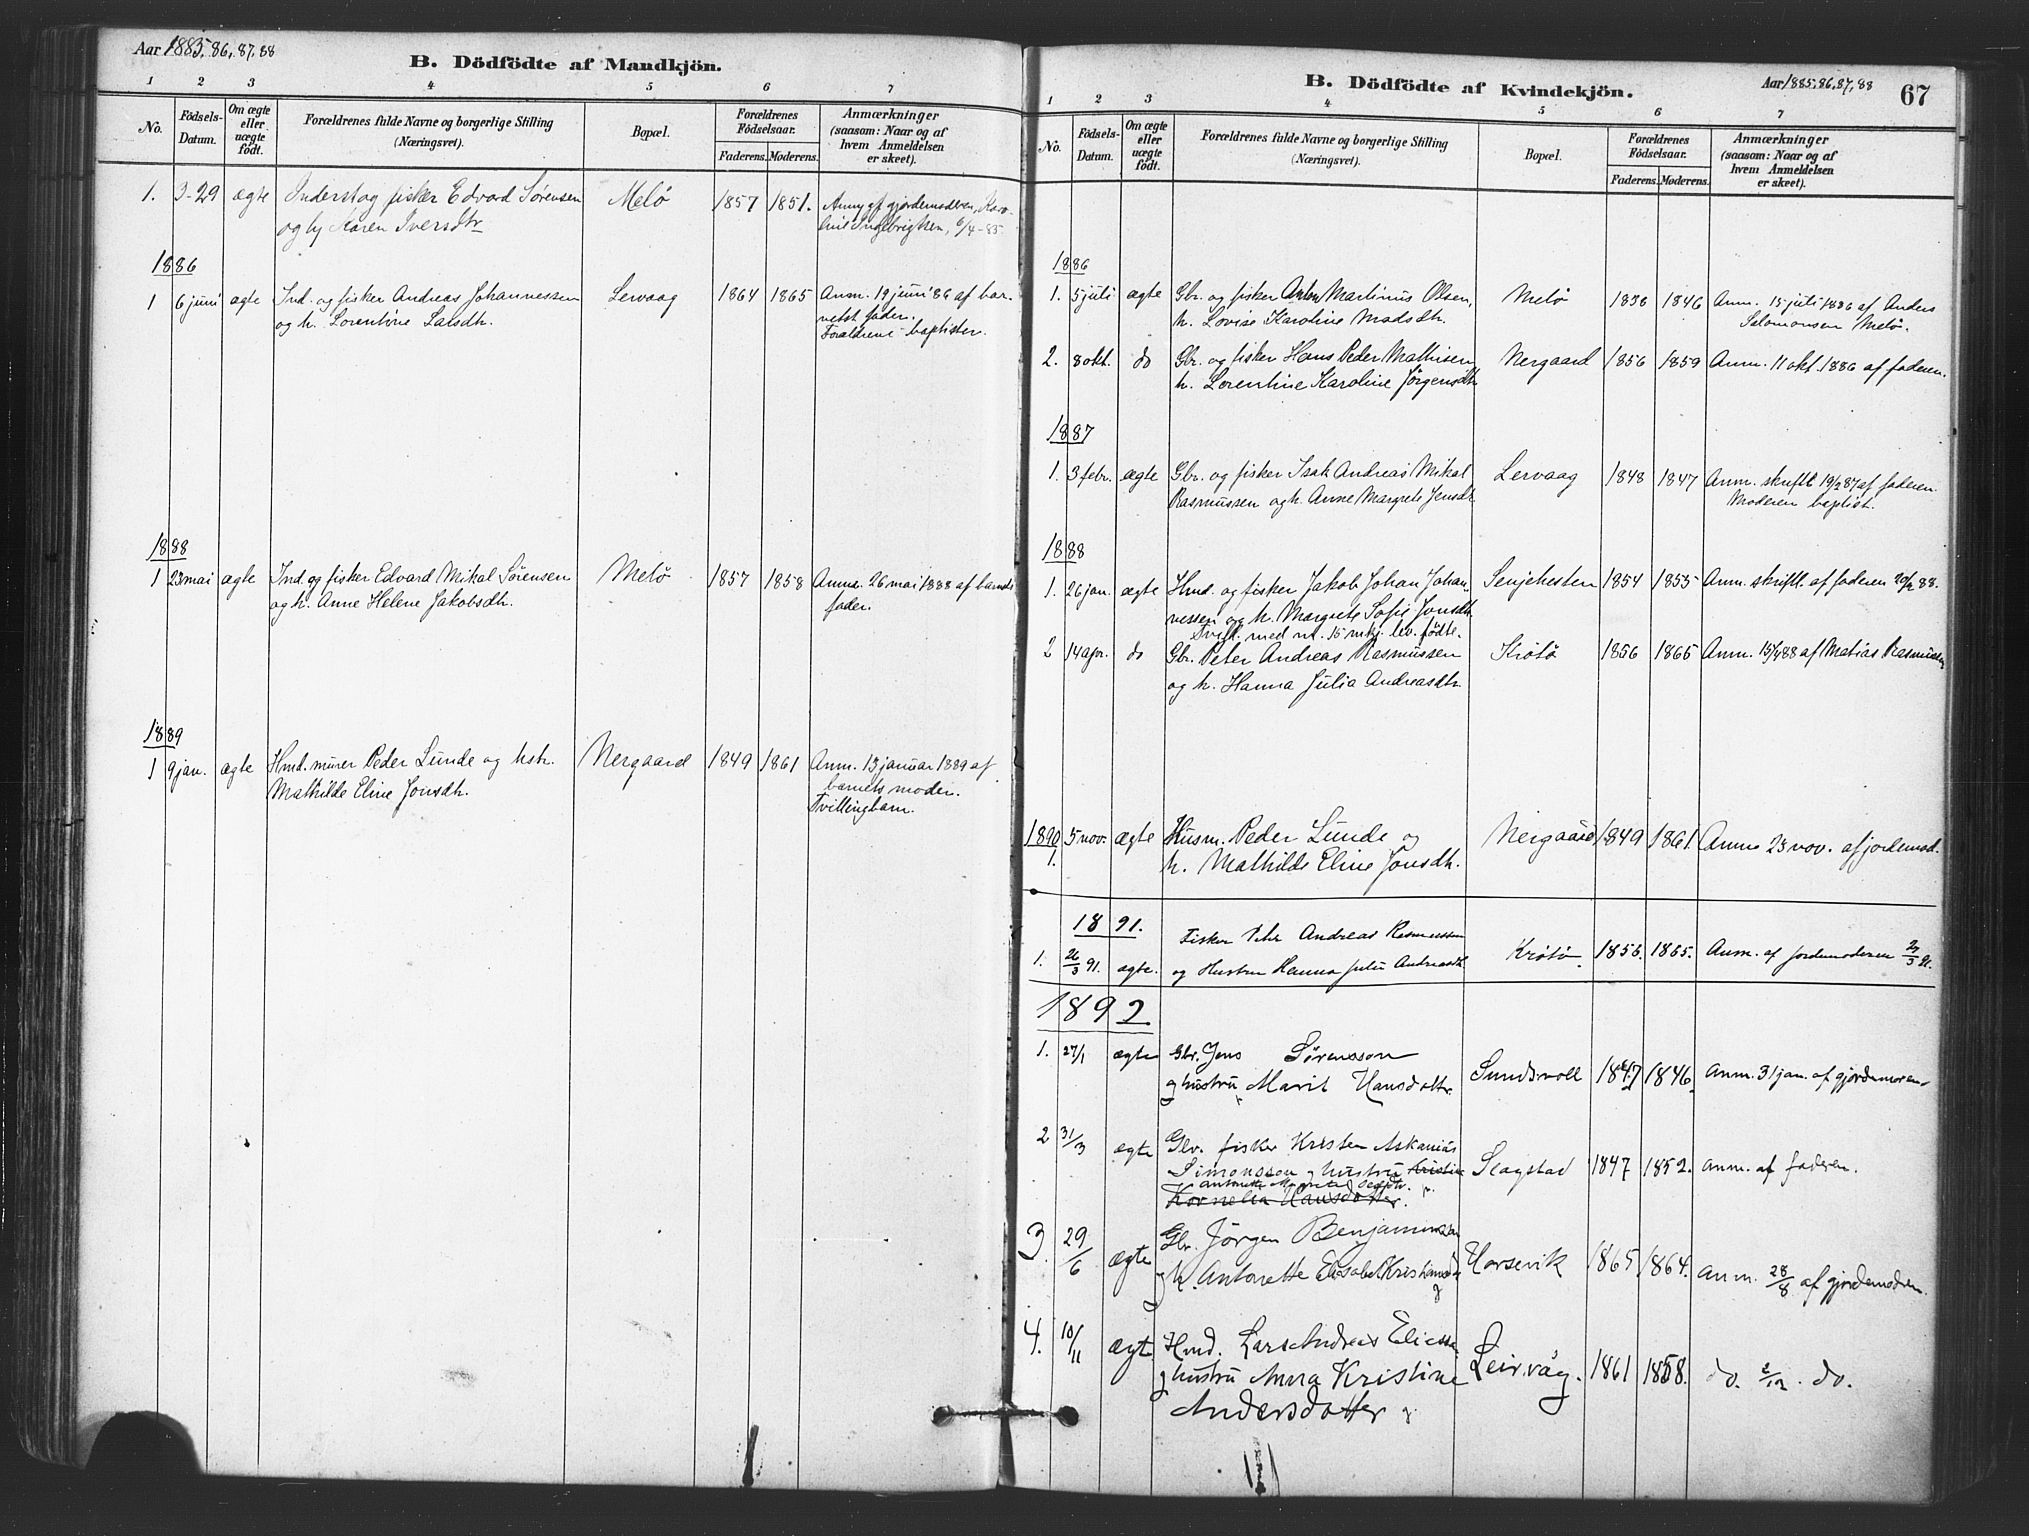 Aar 1885, 86, 87, 88
B. Dödfödte af Mandkjön.
1 2 3 4 5 6 7
No. Födsels-Datum. Om ægte eller uægte födt. Forældrenes fulde Navne og borgerlige Stilling (Næringsvei). Bopæl. Forældrenes Födselsaar. Faderens. Moderens. Anmærkninger (saasom: Naar og af hvem Anmeldelsen er skeet).
1. 3-29 ægte Inderst og fisker Edvard Sørensen Melö 1857 1851. Anm. af gjordemoderen, Karo-
og hu Karen Iversdtr line Ingebrigtsen, 6/4-85
1886
1 6 juni ægte Ind. og fisker Andreas Johannessen Lervaag 1864 1865 Anm. 19 juni 86 af bar-
og h. Lorentine Larsdtr. nets fader.
Forældrene baptister.
1888
1 23 mai ægte Ind. og fisker Edvard Mikal Sörensen Melö 1857 1858 Anm. 26 mai 1888 af barnets
og h. Anne Helene Jakobsdtr. fader.
1889
1 9 jan. ægte Hmd. murer Peder Lunde og hstr. Nergaard 1849 1861 Anm. 13 januar 1889 af
Mathilde Eline Jonsdtr. barnets moder.
Tvillingbarn.
B. Dödfödte af Kvindekjön.
Aar 1885, 86, 87, 88
67
1 2 3 4 5 6 7
No. Födsels-Datum. Om ægte eller uægte födt. Forældrenes fulde Navne og borgerlige Stilling (Næringsvei). Bopæl. Forældrenes Födselsaar. Faderens. Moderens. Anmærkninger (saasom: Naar og af hvem Anmeldelsen er skeet).
1886
1. 5 juli ægte Gbr. og fisker Anton Martinus Olsen, Melö 1836 1846 Anm. 15 juli 1886 af Anders
h. Lovise Karoline Madsdtr. Salomonsen Melö.
2. 8 okt. do Gbr. og fisker Hans Peder Mathisen Nergaard 1856 1859 Anm. 11 okt. 1886 af faderen.
h. Lorentine Karoline Jörgensdtr
1887
1. 3 febr. ægte Gbr. og fisker Isak Andreas Mikal Lervaag 1848 1847 Anm. skriftl. 19/2 87 af faderen
Rasmussen og h. Anne Margrete Jensdtr Moderen baptist.
1888
1. 26 jan. ægte Hmd. og fisker Jakob Johan Johan- Senjehesten 1854 1855 Anm. skriftl. af faderen 20/2 88.
nessen og h. Margrete Sofie Jonsdtr
Tvill. med nr. 15 mkj. lev. födte.
2 14 apr. do Gbr. Peter Andreas Rasmussen Krötö 1856 1865 Anm. 15/4 88 af Matias Rasmussen
og h. Hanna Julia Andreasdtr.
1890 5 nov. ægte Husm. Peder Lunde og Nergaard 1849 1861. Anm. 23 nov. af jordemod.
1. h. Mathilde Eline Jonsdtr.
1891.
Fisker Peter Andreas Rasmussen
1. 26/3 91. ægte. og Hustru Hanna Julie Andreasdtr. Krötö 1856. 1865. Anm. af Jordemoderen 27/3 91.
1892.
1. 27/1 ægte Gbr. Jens Sørensson
g hustru Marit Hansdotter. Sundsvoll 1847 1846. Anm. 31 jan. af gjordemoren
2 31/3 ægte Gbr. fisker Kristen Askanius
Simonsson g hustru Kristine Slagstad 1847 1852. Anm. af faderen.
Kornelia Hansdotter.
3 29/6 ægte Gbr. Jörgen Benjaminsen
g h. Antonette Elisabet Kristiansd. Harsevik 1865 1864. Anm. 28/8 af gjordemodren
4. 10/11 ægt. Hmd. Lars Andreas Elies
g hustru Anna Kristine Leirvåg. 1861 1858. do. 2/12. do.
Andersdotter